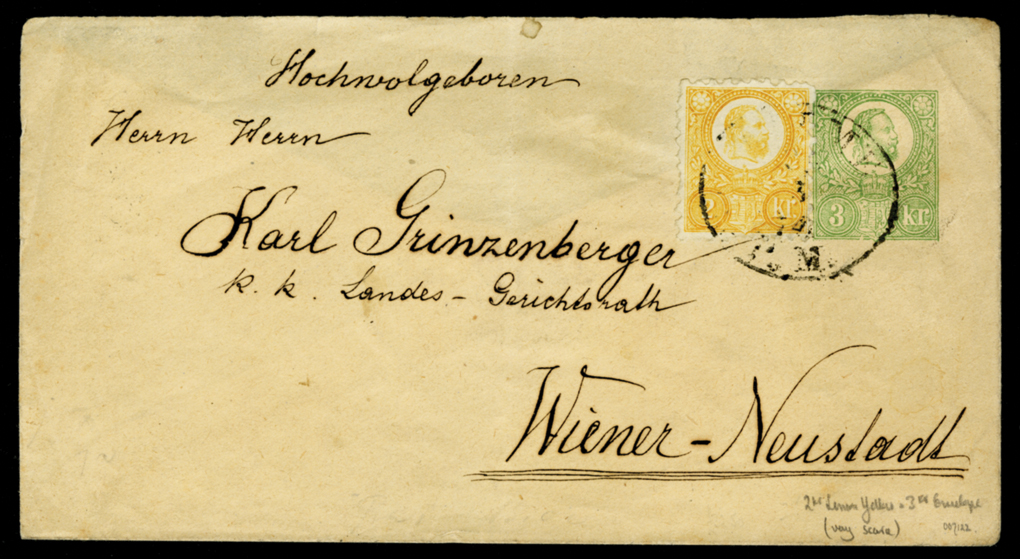 Hochwolgeboren
Herrn Herrn
Karl Grinzenberger
k. k. Landes-Gerichtsrath
Wiener-Neustadt
2 kr.
3 kr.
M.
2kr Lemon Yellow + 3kr Envelope
(very scarce)
007122